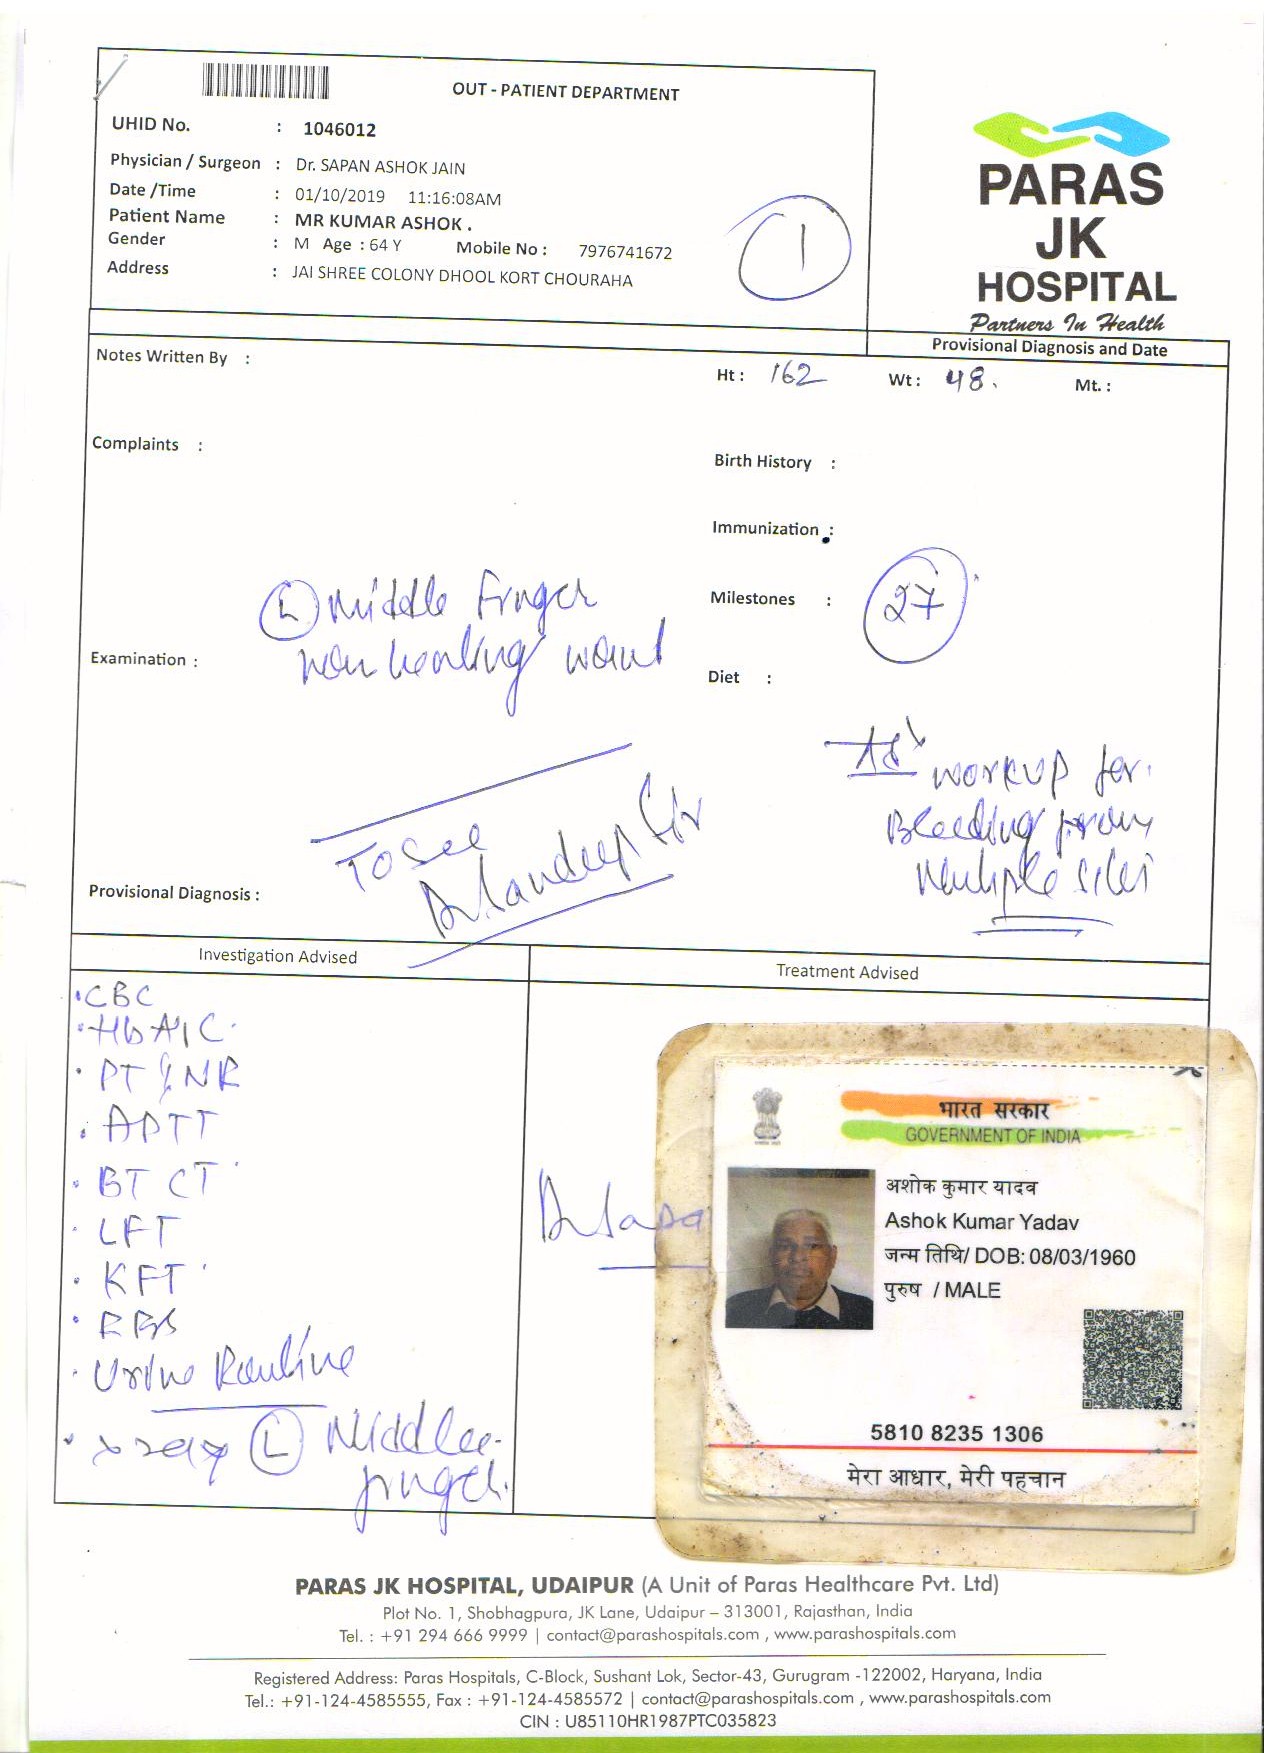 OUT - PATIENT DEPARTMENT
UHID No. : 1046012
Physician / Surgeon : Dr. SAPAN ASHOK JAIN
Date /Time : 01/10/2019 11:16:08AM
Patient Name : MR KUMAR ASHOK .
Gender : M Age : 64 Y Mobile No : 7976741672
Address : JAI SHREE COLONY DHOOL KORT CHOURAHA
1
PARAS
JK
HOSPITAL
Partners In Health
Provisional Diagnosis and Date
Notes Written By :
Ht : 162 Wt : 48. Mt. :
Complaints :
Birth History :
Immunization :
L Middle Finger
Milestones : 27
Examination :
non healing
Diet :
workup for
Bleeding from
Multiple sites
To see
Provisional Diagnosis :
Investigation Advised
Treatment Advised
CBC
HbA1C
PT INR
APTT
BT CT
LFT
KFT
RBS
Urine Routine
X ray L Middle
finger.
भारत सरकार
GOVERNMENT OF INDIA
अशोक कुमार यादव
Ashok Kumar Yadav
जन्म तिथि/ DOB: 08/03/1960
पुरुष / MALE
5810 8235 1306
मेरा आधार, मेरी पहचान
PARAS JK HOSPITAL, UDAIPUR (A Unit of Paras Healthcare Pvt. Ltd)
Plot No. 1, Shobhagpura, JK Lane, Udaipur – 313001, Rajasthan, India
Tel. : +91 294 666 9999 | contact@parashospitals.com , www.parashospitals.com
Registered Address: Paras Hospitals, C-Block, Sushant Lok, Sector-43, Gurugram -122002, Haryana, India
Tel.: +91-124-4585555, Fax : +91-124-4585572 | contact@parashospitals.com , www.parashospitals.com
CIN : U85110HR1987PTC035823